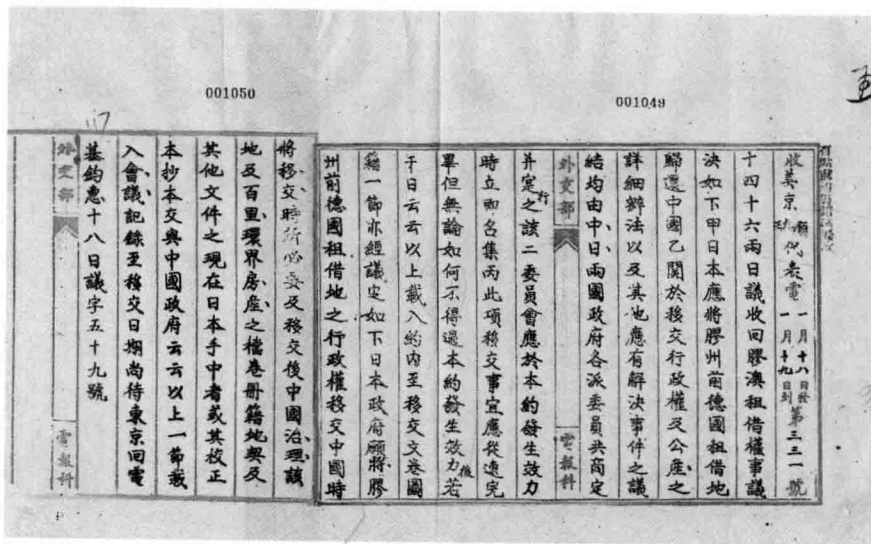 001050
001049
收英京顧代表電 一月十八日發 一月十九日到 第三三一號
十四十六兩日議收回膠澳租借權事議
決如下甲日本應將膠州前德國租借地
歸還中國乙關於移交行政權及公產之
詳細辦法以及其他應有解決事件之議
結均由中日兩國政府各派委員共商定
外交部 電報科
并定行之該二委員會應於本約發生效力
時立即召集丙此項移交事宜應從速完
畢但無論如何不得過本約發生效力後若
干日云云以上載入約內至移交文卷圖
籍一節亦經議定如下日本政府願將膠
州前德國租借地之行政權移交中國時
將移交時所必要及移交後中國治理該
地及百里環界房產之檔卷冊籍地契及
其他文件之現在日本手中者或其校正
本抄本交與中國政府云云以上一節載
入會議記錄至移交日期尚待東京回電
基鈞惠十八日議字五十九號
外交部 電報科